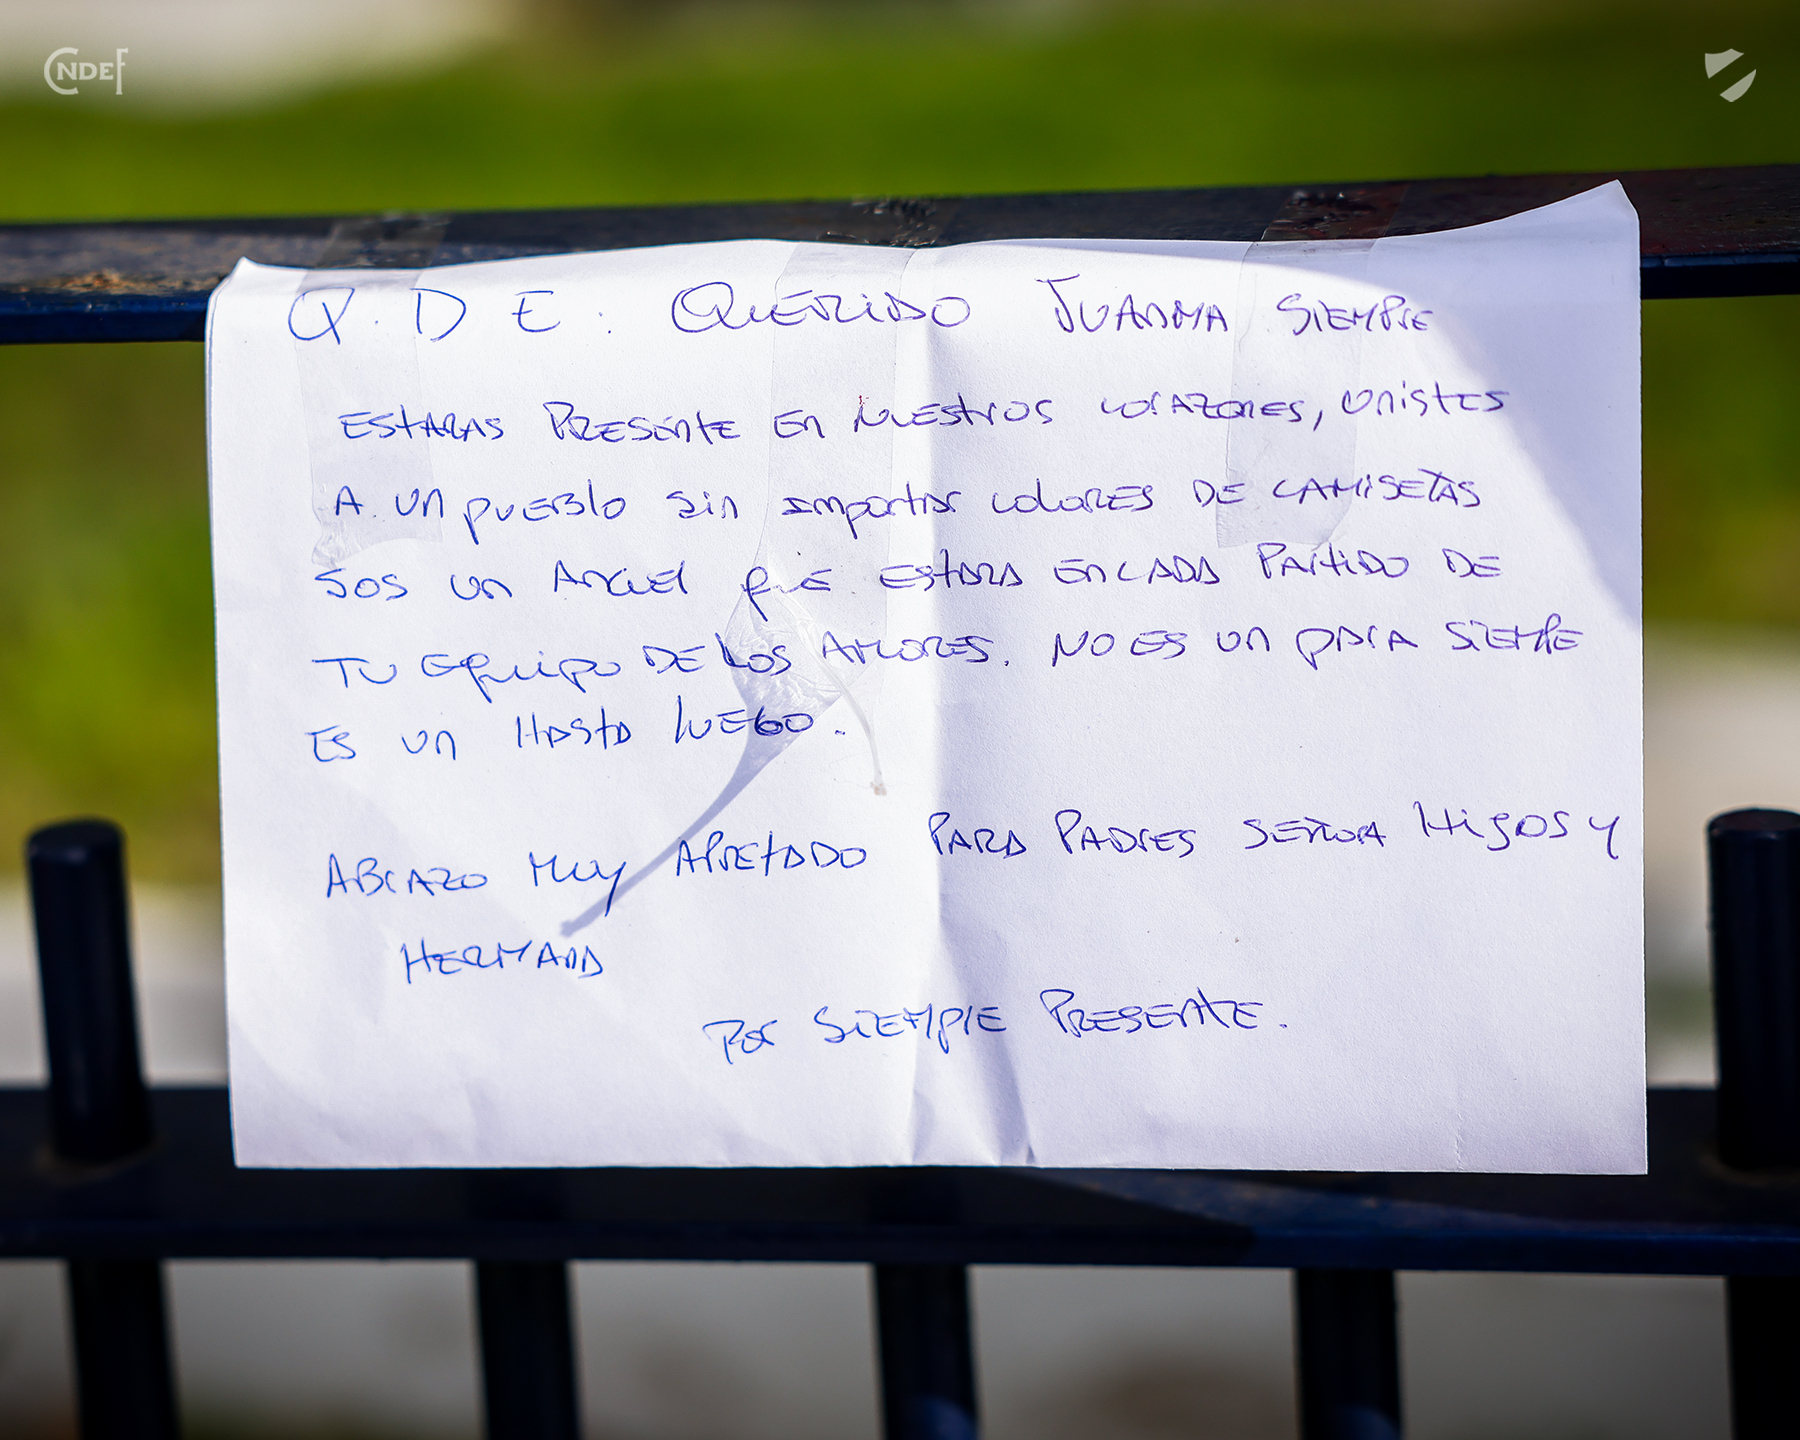 CNDEF
Q.D E. QUERIDO JUANMA SIEMPRE
ESTARAS PRESENTE EN NUESTROS CORAZONES, UNISTES
A UN PUEBLO SIN IMPORTAR COLORES DE CAMISETAS
SOS UN ANGEL QUE ESTARA EN CADA PARTIDO DE
TU EQUIPO DE LOS AMORES. NO ES UN PARA SIEMPRE
ES UN HASTA LUEGO.
ABRAZO MUY APRETADO PARA PADRES SEÑORA HIJOS Y
HERMANA
POR SIEMPRE PRESENTE.